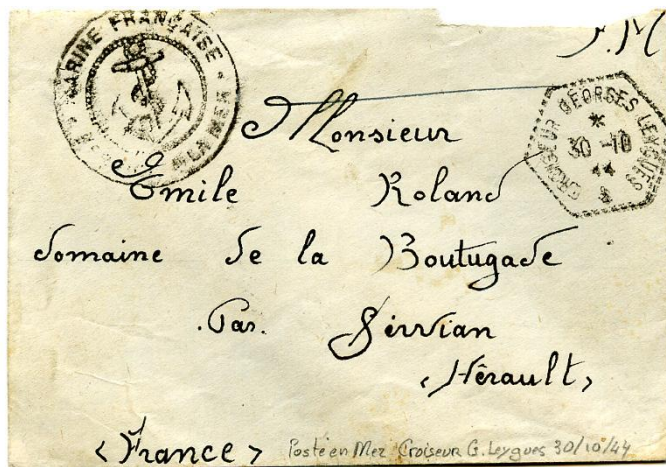 F.M
MARINE FRANÇAISE
A LA MER
CROISEUR GEORGES LEYGUES
*
30 -10
44
Monsieur
Emile Roland
domaine de la Boutugade
Par. Servian
<Hérault>
<France>
Posté en Mer Croiseur G. Leygues 30/10/44